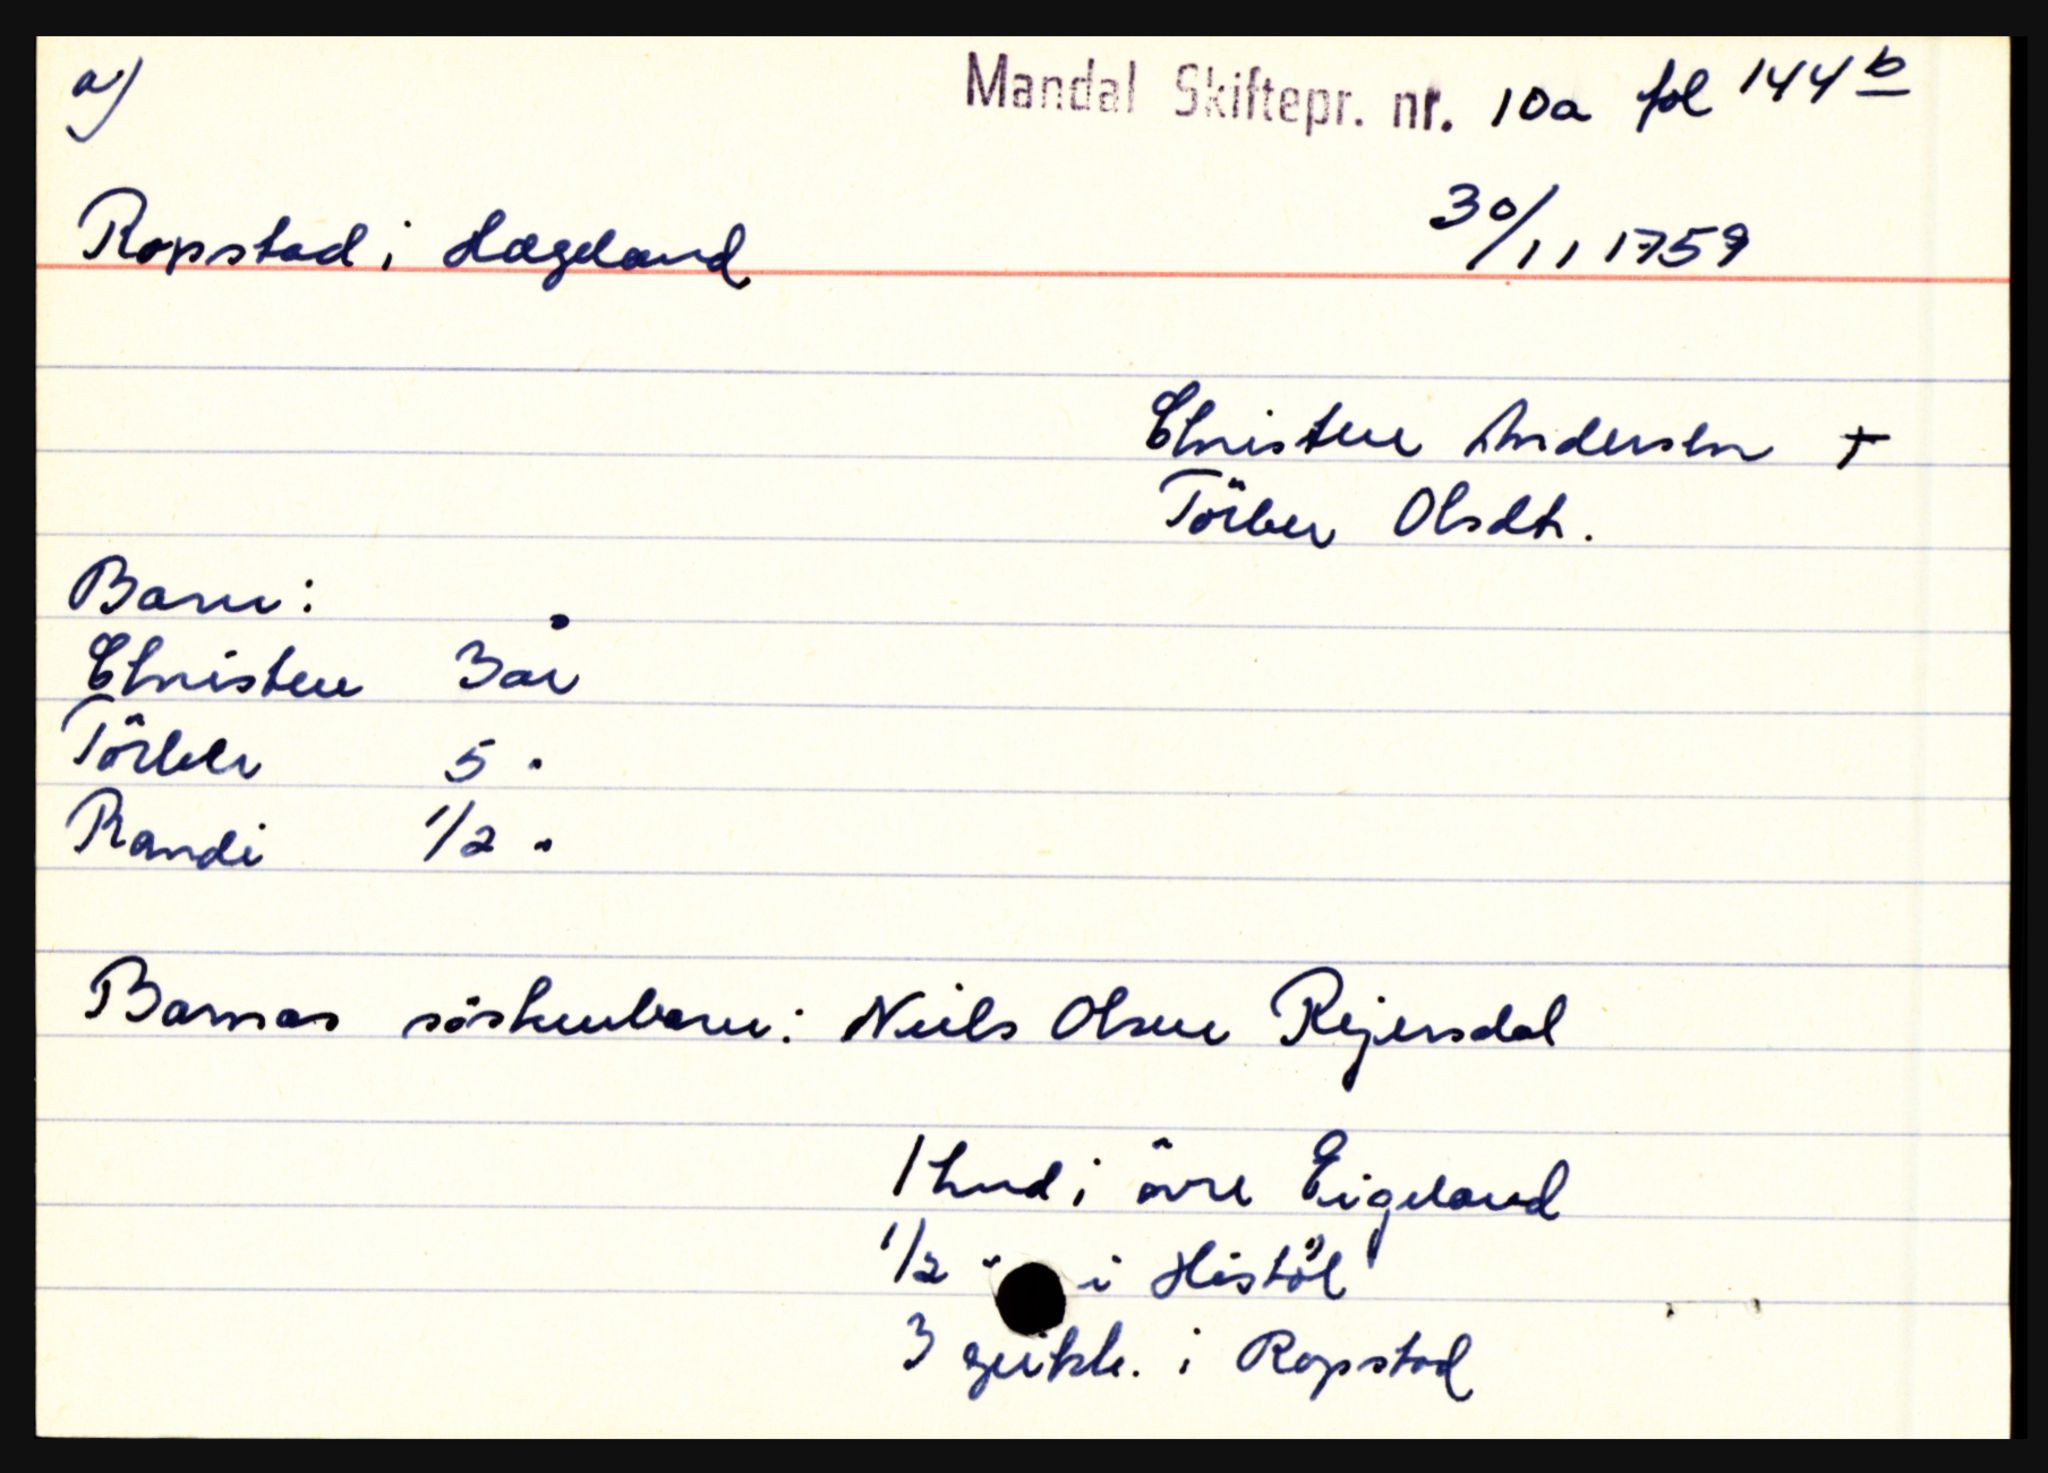 a)
Mandal Skiftepr. nr. 10a fol 144 b
Ropstad i Hægeland 30/11 1759
Christen Andersen +
Törber Olsdtr.
Barn:
Christen 3 år
Törber 5 "
Randi 1/2 "
Barnas söskenbarn: Niels Olsen Rejersdal
1 hud i övre Eigeland
1/2 " i Histöl
3 geitsk. i Ropstad